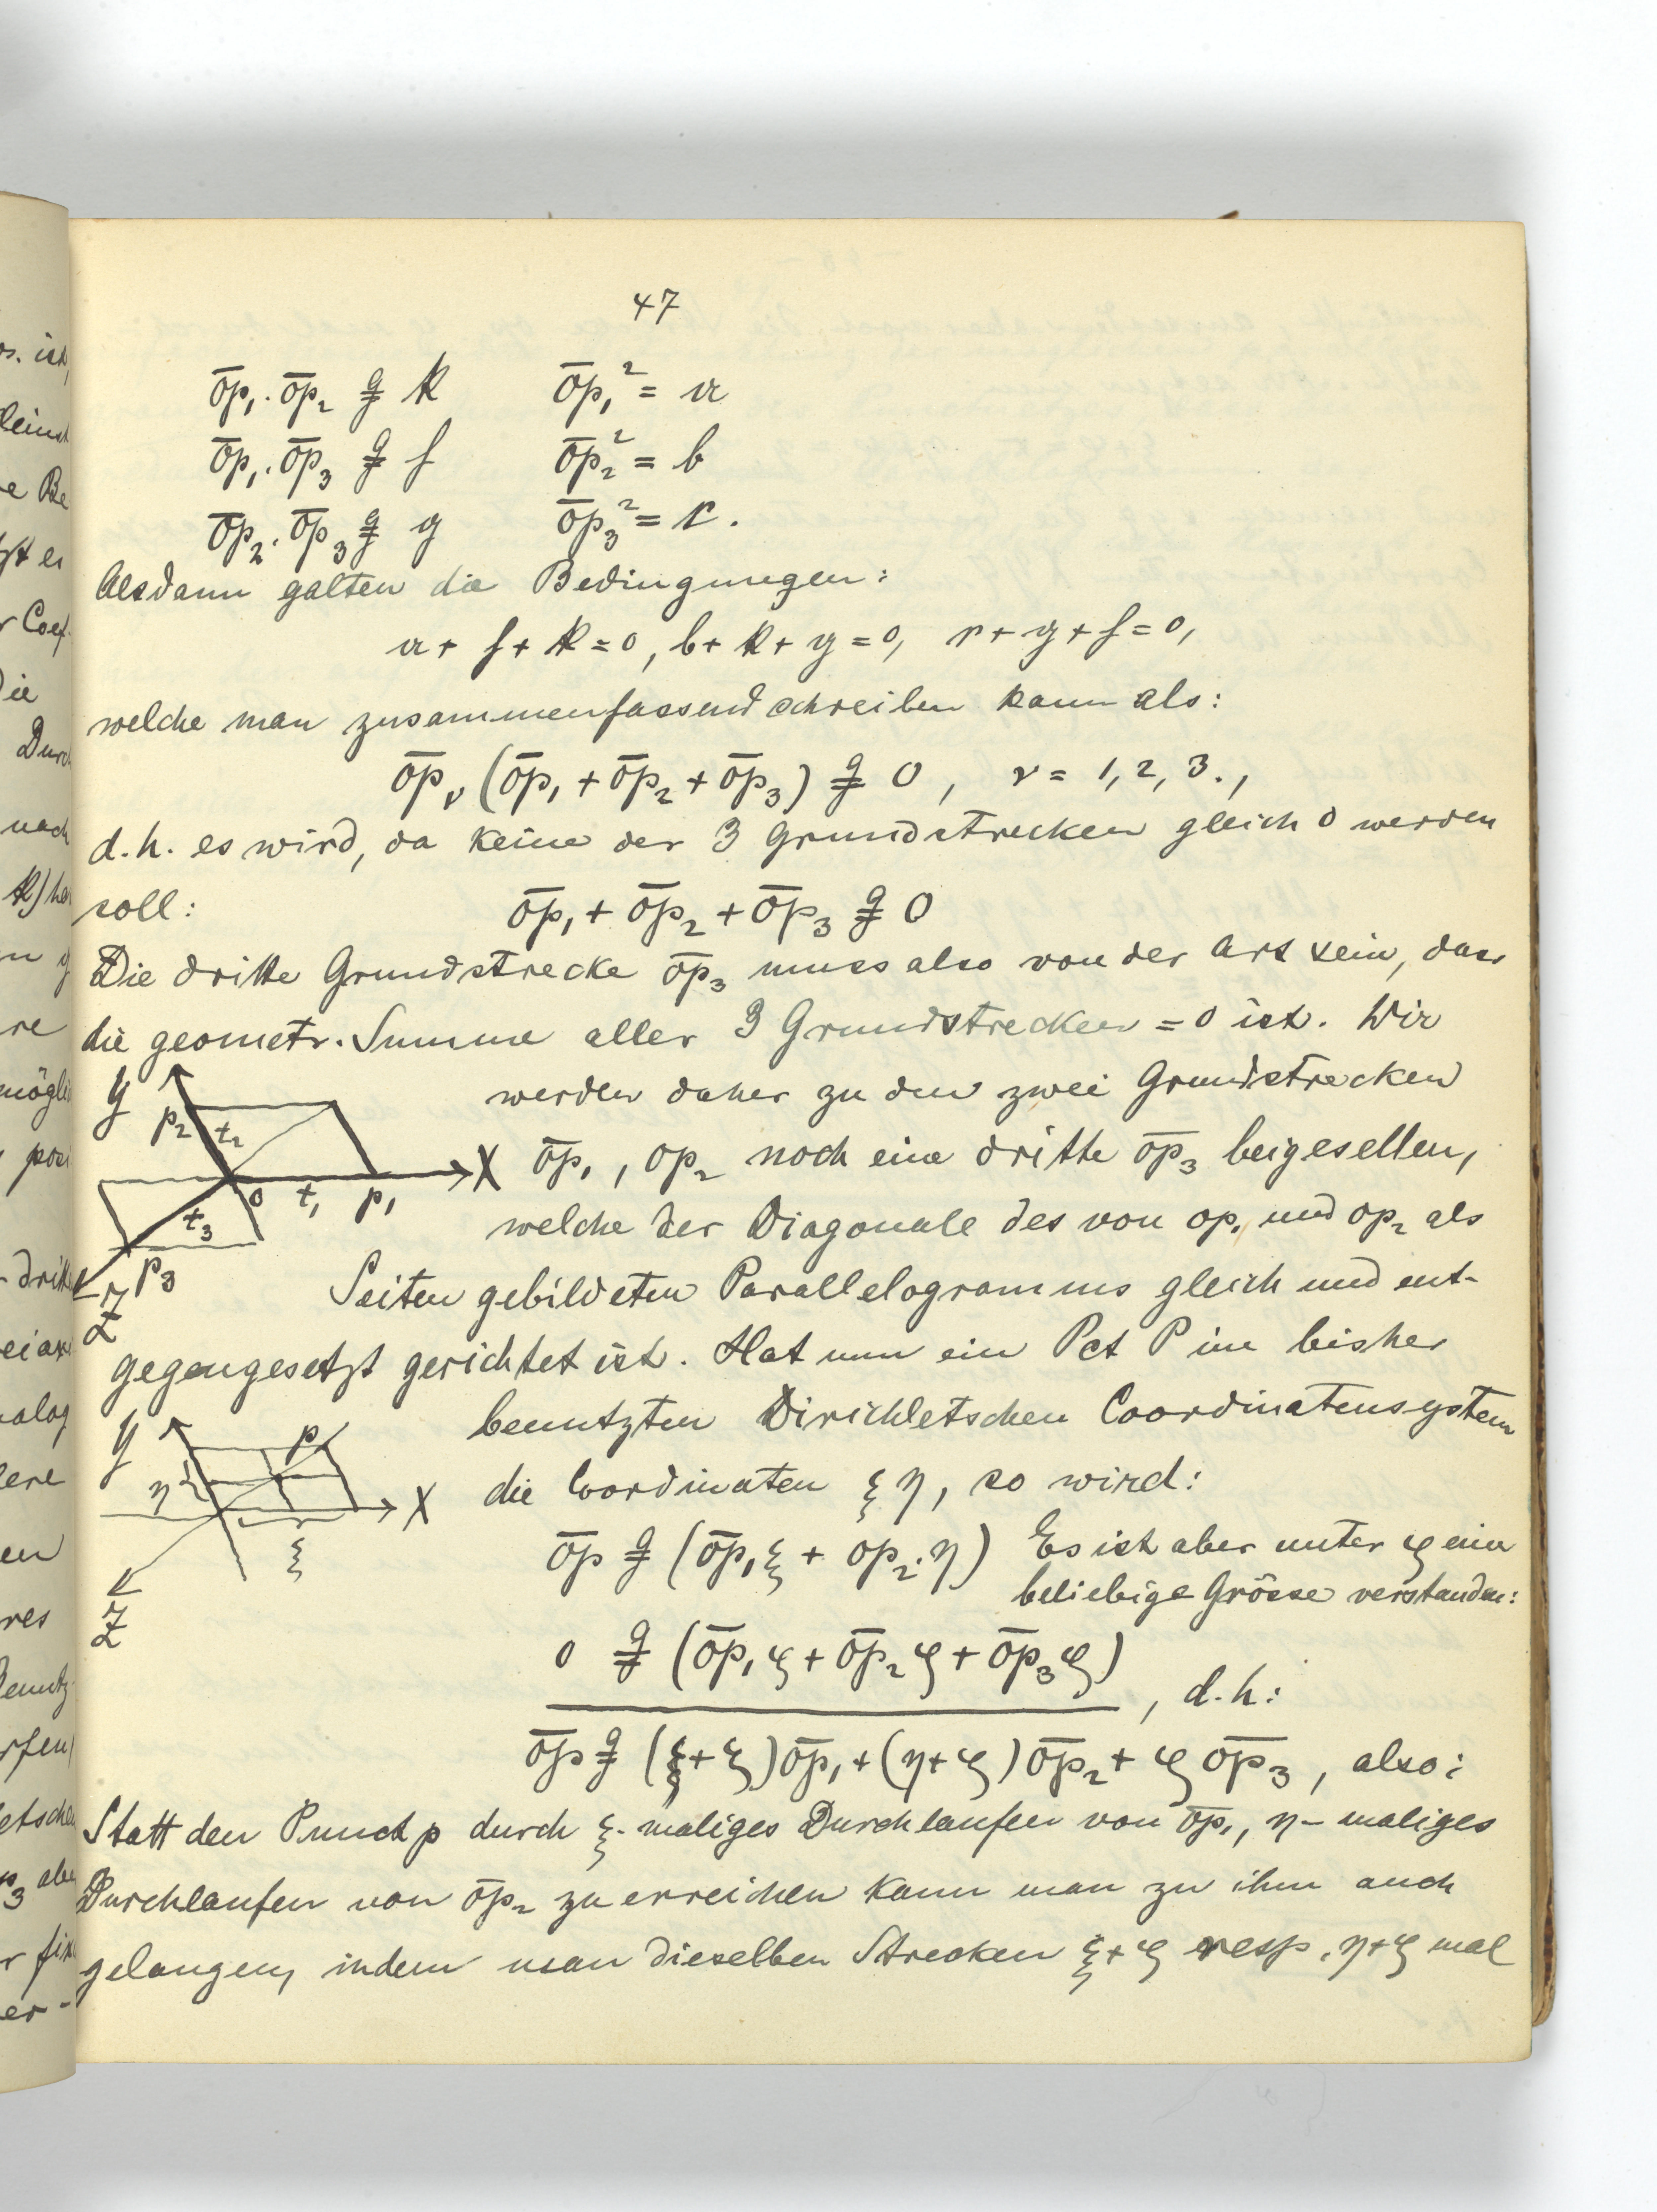 47
o̅p̅₁ · o̅p̅₂ ⩵ k    o̅p̅₁² = a
o̅p̅₁ · o̅p̅₃ ⩵ f    o̅p̅₂² = b
o̅p̅₂ · o̅p̅₃ ⩵ g    o̅p̅₃² = c.
Alsdann galten die Bedingungen:
a + f + k = 0, b + k + g = 0, c + g + f = 0,
welche man zusammenfassend schreiben kann als:
o̅p̅ᵥ (o̅p̅₁ + o̅p̅₂ + o̅p̅₃) ⩵ 0, ν = 1, 2, 3.,
d.h. es wird, da keine der 3 Grundstrecken gleich 0 werden
soll: o̅p̅₁ + o̅p̅₂ + o̅p̅₃ ⩵ 0
Die dritte Grundstrecke o̅p̅₃ muss also von der Art sein, dass
die geometr. Summe aller 3 Grundstrecken = 0 ist. Wir
werden daher zu den zwei Grundstrecken
o̅p̅₁, op₂ noch eine dritte o̅p̅₃ beigesellen,
welche der Diagonale des von op₁ und op₂ als
Seiten gebildeten Parallelogramms gleich und ent-
gegengesetzt gerichtet ist. Hat nun ein Pct P im bisher
benutzten Dirichletschen Coordinatensystem
die Coordinaten ξ η, so wird:
o̅p̅ ⩵ (o̅p̅₁ ξ + op₂ · η) Es ist aber unter ζ eine
beliebige Grösse verstanden:
0 ⩵ (o̅p̅₁ ζ + o̅p̅₂ ζ + o̅p̅₃ ζ)
, d.h:
o̅p̅ ⩵ (ξ+ζ) o̅p̅₁ + (η+ζ) o̅p̅₂ + ζ o̅p̅₃, also:
Statt den Punct p durch ξ-maliges Durchlaufen von o̅p̅₁, η-maliges
Durchlaufen von o̅p̅₂ zu erreichen kann man zu ihm auch
gelangen, indem man dieselben Strecken ξ+ζ resp. η+ζ mal
y
p₂ t₂
X
o t₁ p₁
t₃
p₃
Z
y
p
η
X
ξ
Z